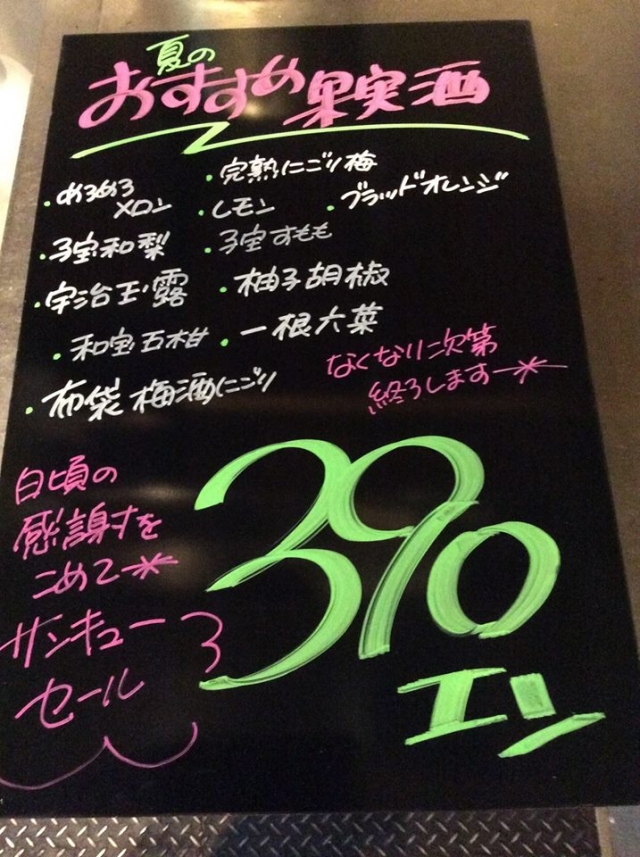 夏の
おすすめ果実酒
・完熟にごり梅
・あらめる
メロン
・レモン
・ブラッドオレンジ
・子宝和梨
・子宝すもも
・宇治玉露
・柚子胡椒
・和宝五柑
・一根六菜
なくなり次第
終了します
・布袋 梅酒にごり
日頃の
感謝を
こめて
サンキュー
セール
390
エン